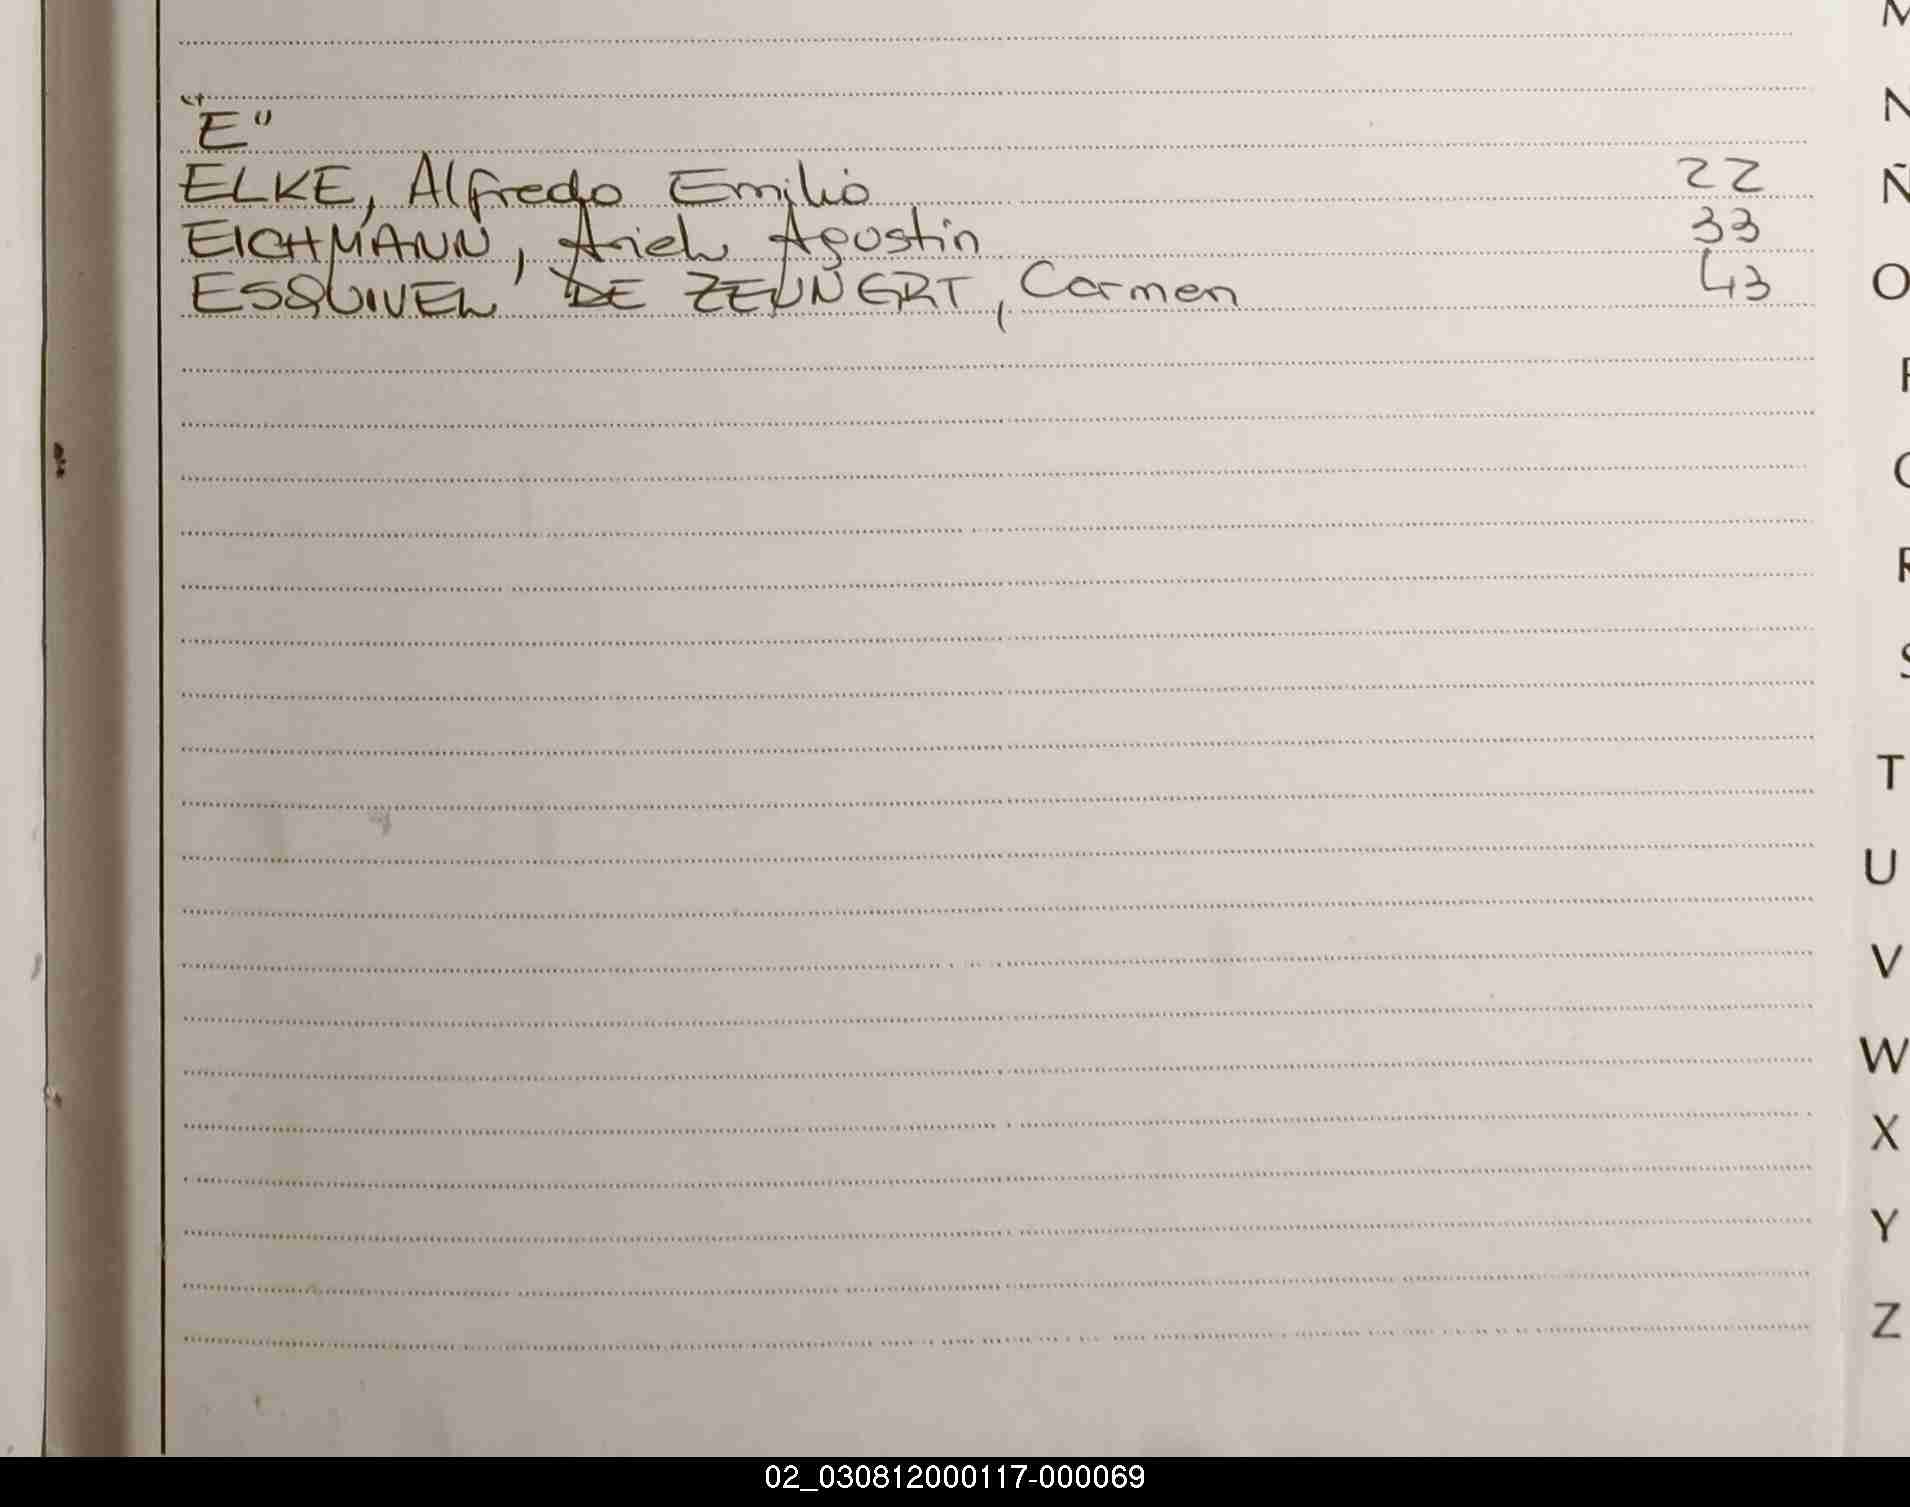 "E"
ELKE, Alfredo Emilio 22
EICHMANN, Ariel Agustin 33
ESQUIVEL DE ZEUNERT, Carmen 43
M
N
Ñ
O
P
Q
R
S
T
U
V
W
X
Y
Z
02_030812000117-000069